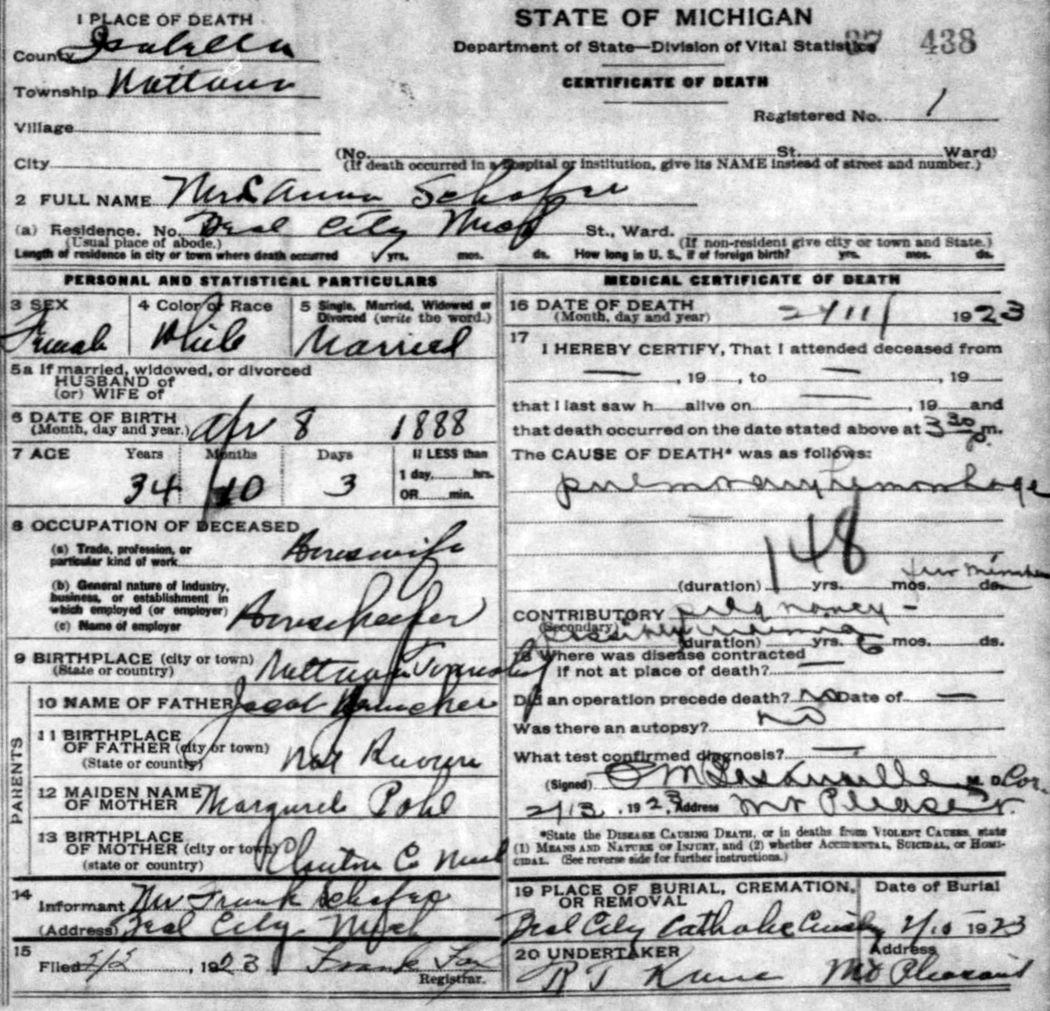 STATE OF MICHIGAN
Department of State—Division of Vital Statistics
37 438
CERTIFICATE OF DEATH
Registered No. 1
1 PLACE OF DEATH
County Isabella
Township Nottawa
Village
City
(No. St. Ward)
(If death occurred in a hospital or institution, give its NAME instead of street and number.)
2 FULL NAME Mrs Anna Schafer
(a) Residence. No. Beal City Mich St., Ward.
(Usual place of abode.) (If non-resident give city or town and State.)
Length of residence in city or town where death occurred yrs. mos. ds. How long in U. S., if of foreign birth? yrs. mos. ds.
PERSONAL AND STATISTICAL PARTICULARS
3 SEX 4 Color or Race 5 Single, Married, Widowed or
Divorced (write the word.)
Female White Married
5a If married, widowed, or divorced
HUSBAND of
(or) WIFE of
6 DATE OF BIRTH
(Month, day and year.) Apr 8 1888
7 AGE Years Months Days If LESS than
1 day, hrs.
OR min.
34 10 3
8 OCCUPATION OF DECEASED
(a) Trade, profession, or
particular kind of work Housewife
(b) General nature of industry,
business, or establishment in
which employed (or employer)
(c) Name of employer
9 BIRTHPLACE (city or town)
(State or country) Nottawa Township
PARENTS
10 NAME OF FATHER Jacob
11 BIRTHPLACE
OF FATHER (city or town)
(State or country) Not Known
12 MAIDEN NAME
OF MOTHER Margaret Pohl
13 BIRTHPLACE
OF MOTHER (city or town)
(state or country) Clinton Co Mich
14
Informant Mr Frank Schafer
(Address) Beal City Mich
15
Filed 1923 Frank
Registrar.
MEDICAL CERTIFICATE OF DEATH
16 DATE OF DEATH
(Month, day and year) 2/11/ 1923
17
I HEREBY CERTIFY, That I attended deceased from
— , 19 , to — , 19
that I last saw h alive on — , 19 and
that death occurred on the date stated above at 3 30 p. m.
The CAUSE OF DEATH* was as follows:
pulmonary hemorrhage
148
(duration) yrs. mos. ds.
CONTRIBUTORY pregnancy -
(Secondary)
(duration) yrs. 6 mos. ds.
18 Where was disease contracted
if not at place of death? —
Did an operation precede death? no Date of —
Was there an autopsy? no
What test confirmed diagnosis? —
(Signed) M. D. Cor.
2/13, 1923 Address Mt Pleasant
*State the DISEASE CAUSING DEATH, or in deaths from VIOLENT CAUSES, state
(1) MEANS AND NATURE OF INJURY, and (2) whether ACCIDENTAL, SUICIDAL, OR HOMI-
CIDAL. (See reverse side for further instructions.)
19 PLACE OF BURIAL, CREMATION, OR REMOVAL Date of Burial
Beal City Catholic 1923
20 UNDERTAKER Address
R T Mt Pleasant